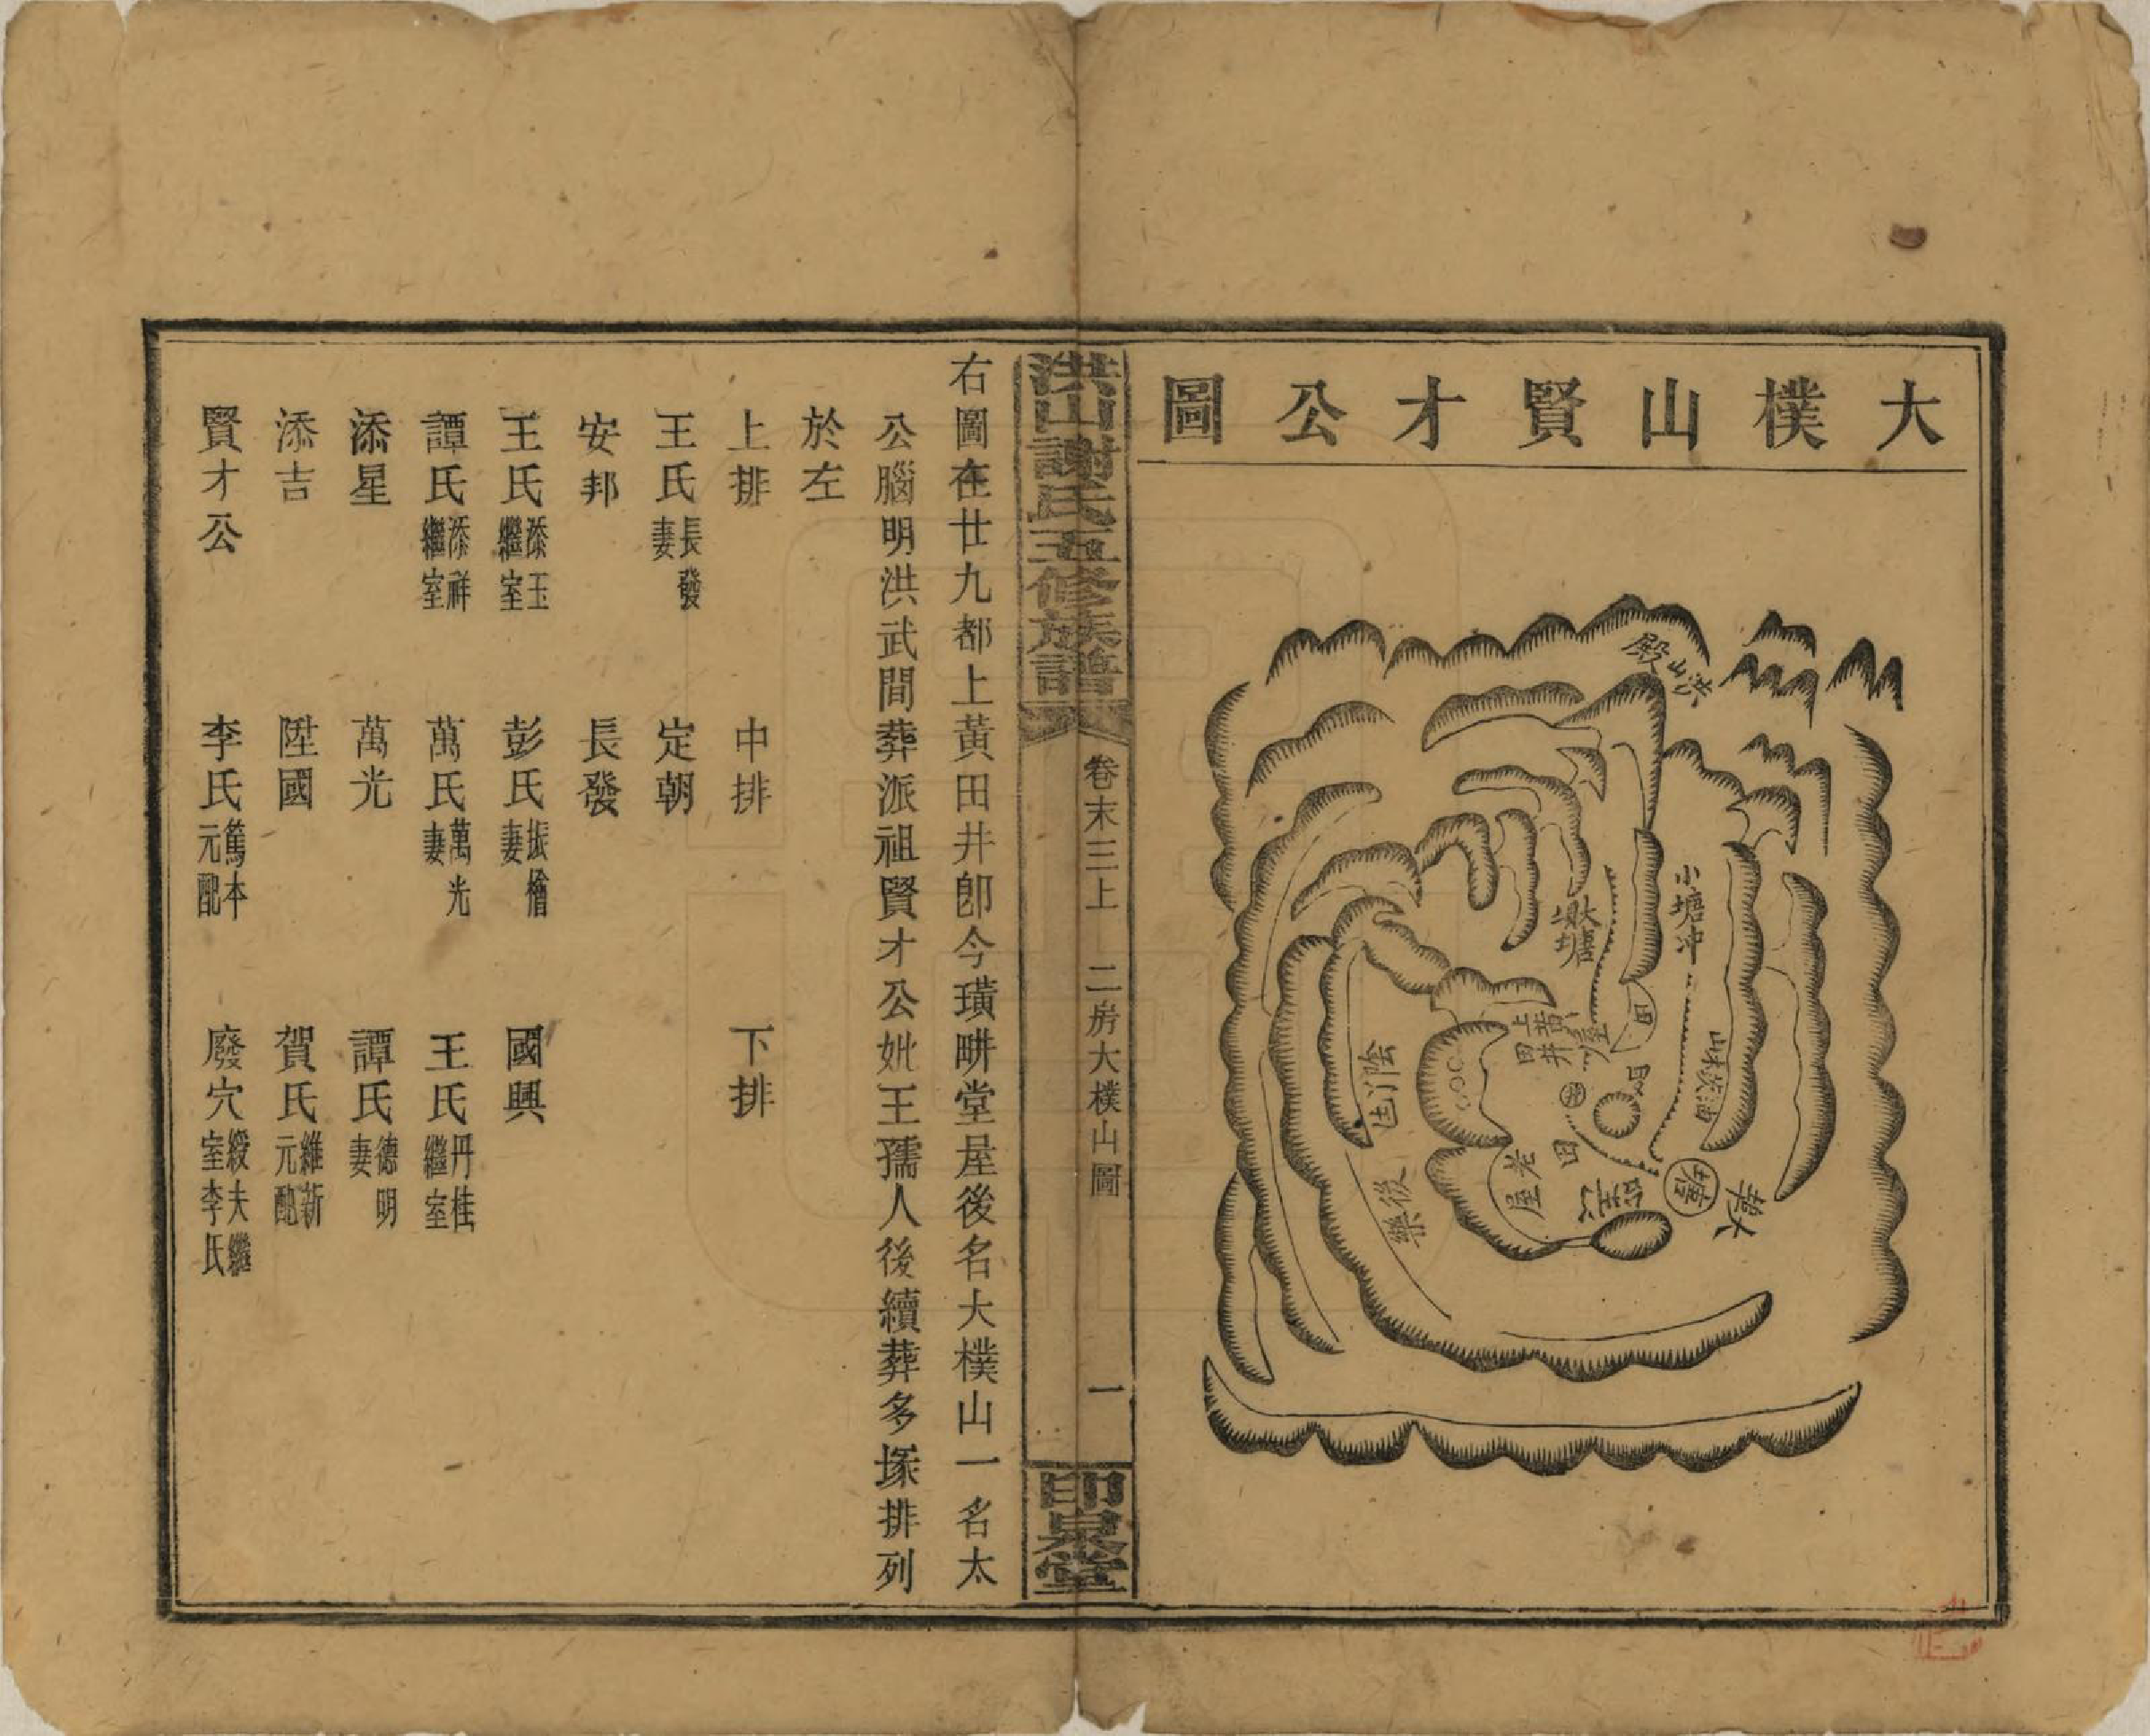 大樸山賢才公圖
洪山殿
小塘冲
大坳塘
上黃田井
屋
油茨林山
田
井
老屋
塘
大犇
田
後樂
洪山謝氏五修族譜
卷末三上　二房大樸山圖　一
印泉堂
右圖在廿九都上黃田井卽今璜畊堂屋後名大樸山一名太
公腦明洪武間葬派祖賢才公妣王孺人後續葬多塚排列
於左
上排　中排　下排
王氏長發妻　定朝
安邦　長發
王氏添玉繼室　彭氏振檜妻　國興
譚氏添祥繼室　萬氏萬光妻　王氏丹桂繼室
添星　萬光　譚氏德明妻
添吉　陞國　賀氏維新元配
賢才公　李氏篤本元配　廢穴綬夫繼室李氏